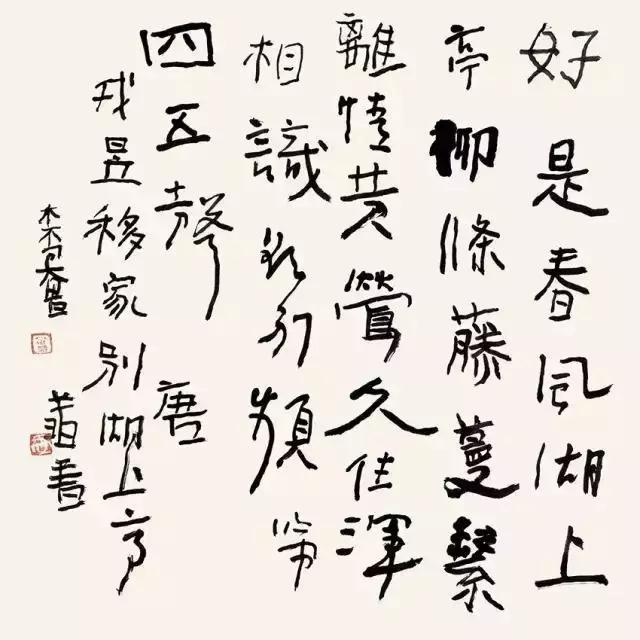 好是春風湖上
亭柳條藤蔓繫
離情黃鶯久住渾
相識欲別頻啼
四五聲 唐
戎昱移家別湖上亭
書